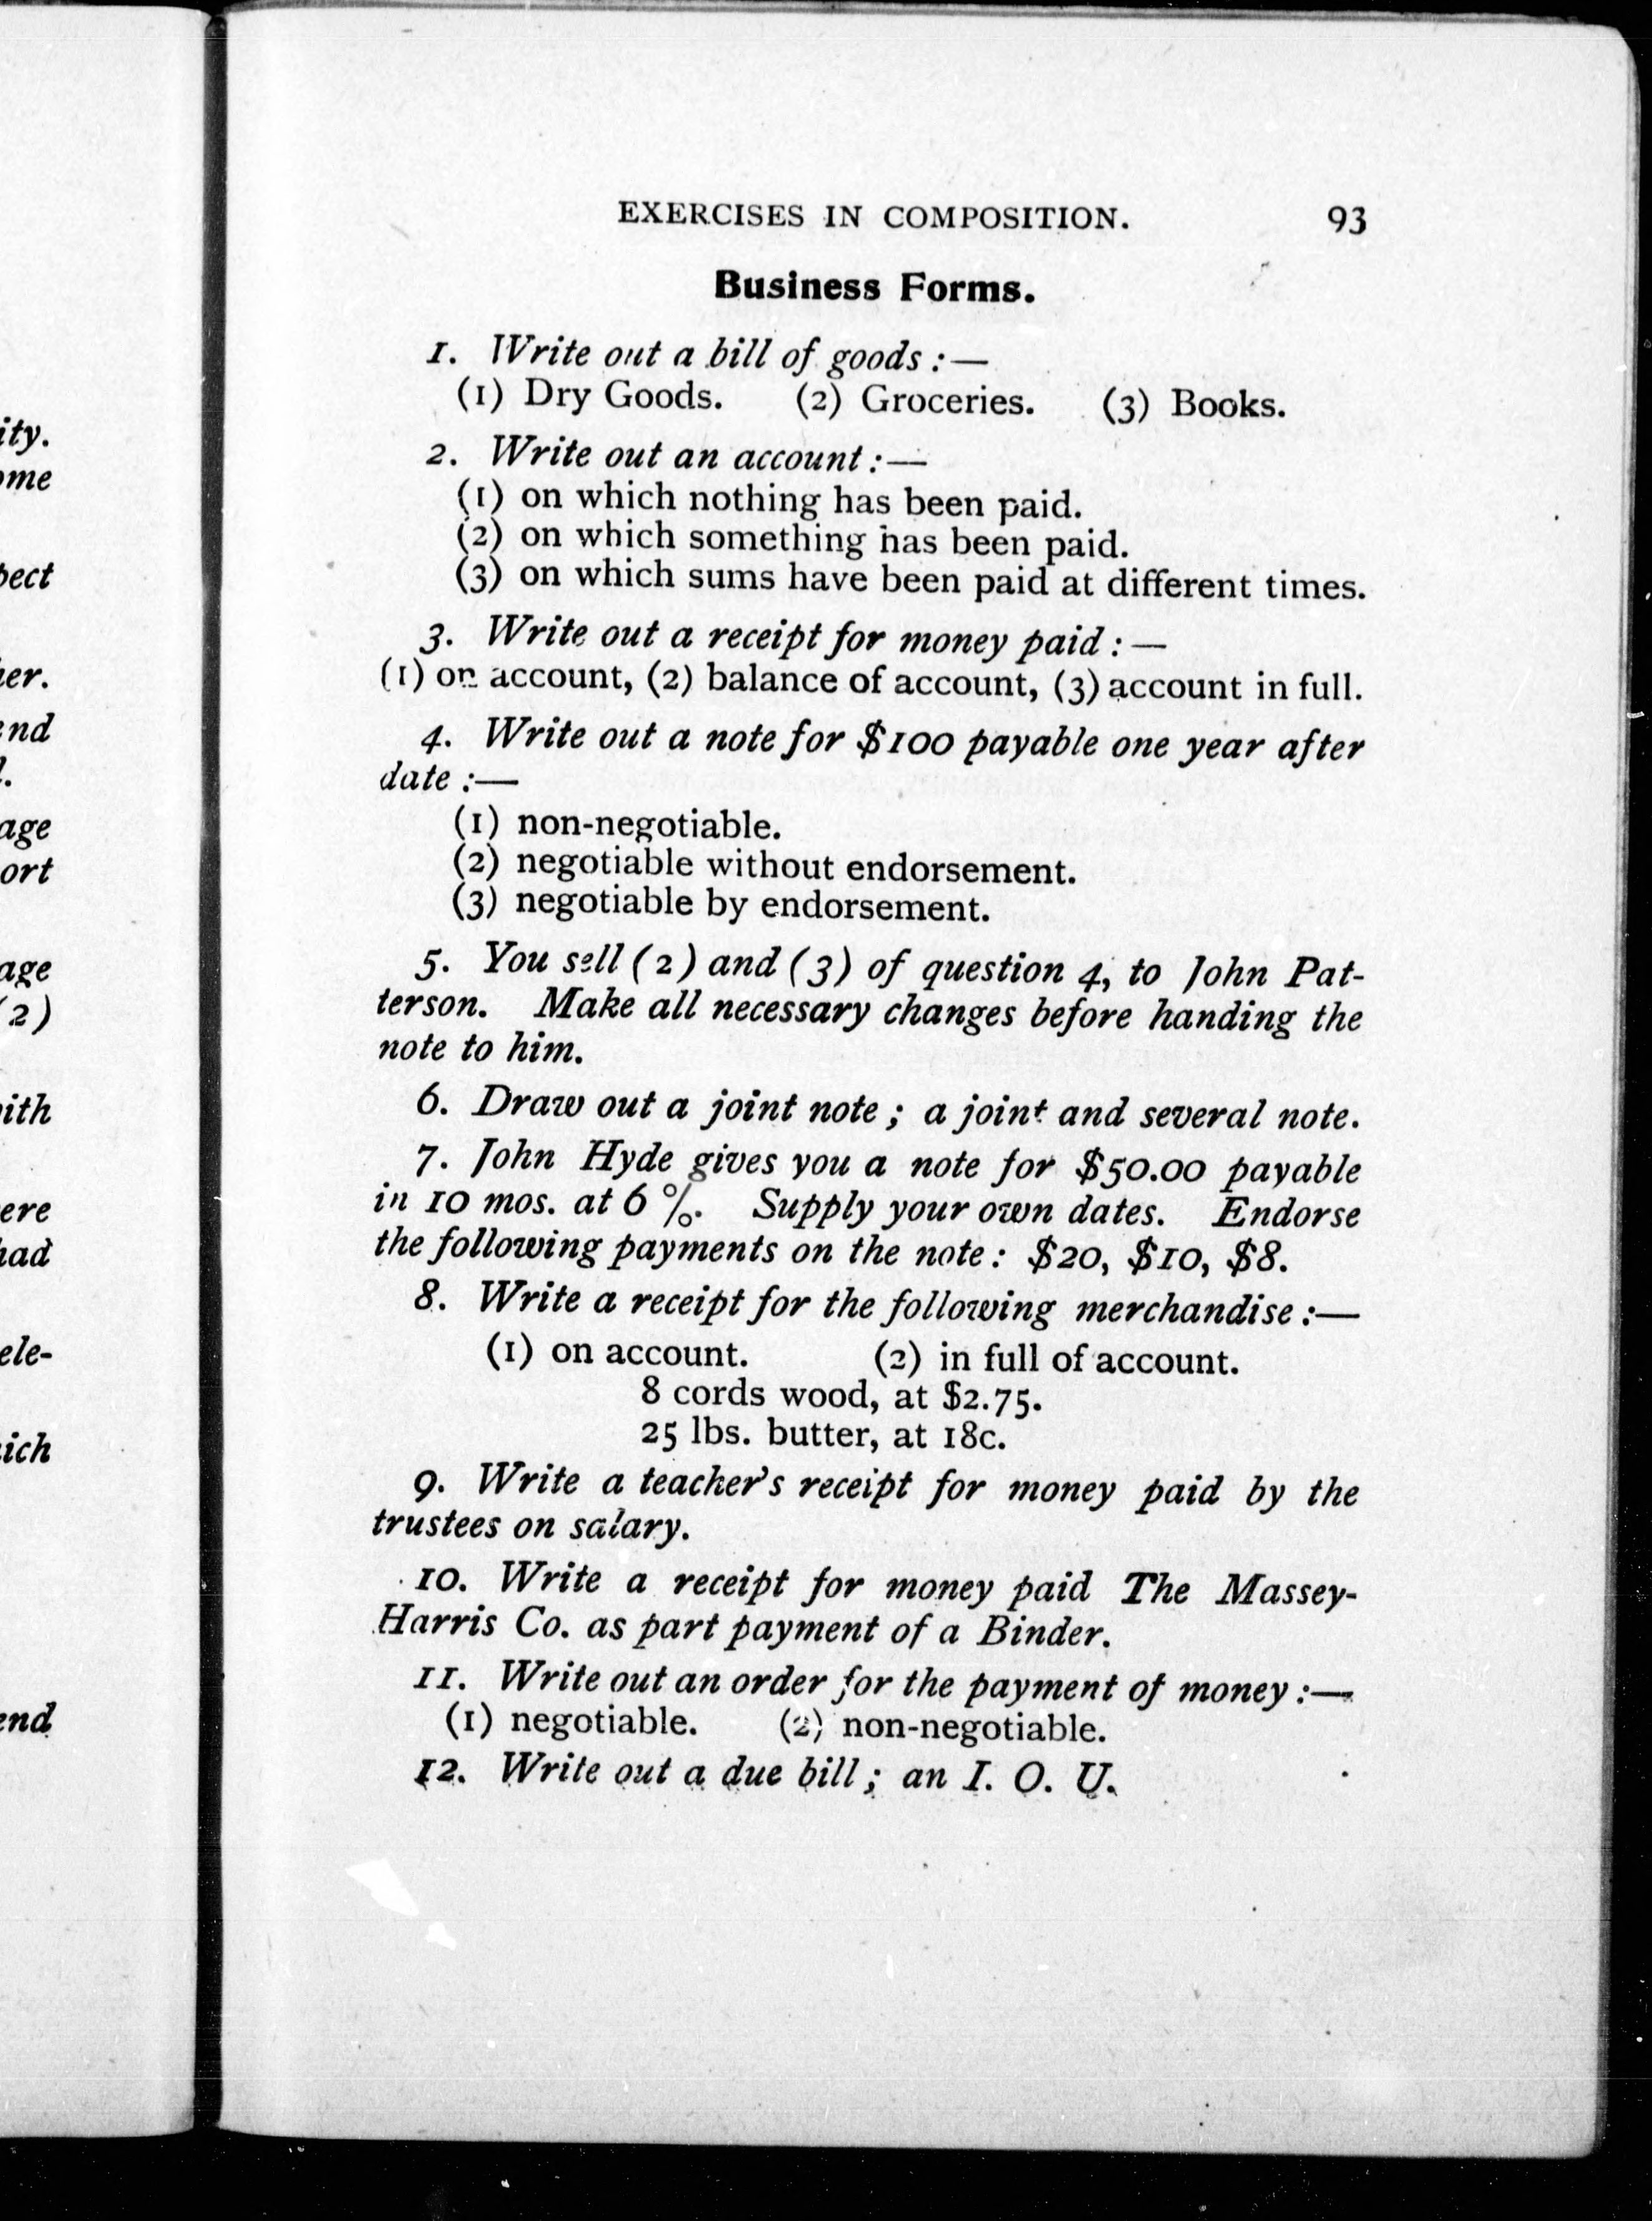 EXERCISES IN COMPOSITION. 93
Business Forms.
1. Write out a bill of goods :—
(1) Dry Goods. (2) Groceries. (3) Books.
2. Write out an account :—
(1) on which nothing has been paid.
(2) on which something has been paid.
(3) on which sums have been paid at different times.
3. Write out a receipt for money paid : —
(1) on account, (2) balance of account, (3) account in full.
4. Write out a note for $100 payable one year after
date :—
(1) non-negotiable.
(2) negotiable without endorsement.
(3) negotiable by endorsement.
5. You sell (2) and (3) of question 4, to John Pat-
terson. Make all necessary changes before handing the
note to him.
6. Draw out a joint note ; a joint and several note.
7. John Hyde gives you a note for $50.00 payable
in 10 mos. at 6 %. Supply your own dates. Endorse
the following payments on the note : $20, $10, $8.
8. Write a receipt for the following merchandise :—
(1) on account. (2) in full of account.
8 cords wood, at $2.75.
25 lbs. butter, at 18c.
9. Write a teacher's receipt for money paid by the
trustees on salary.
10. Write a receipt for money paid The Massey-
Harris Co. as part payment of a Binder.
11. Write out an order for the payment of money :—
(1) negotiable. (2) non-negotiable.
12. Write out a due bill ; an I. O. U.